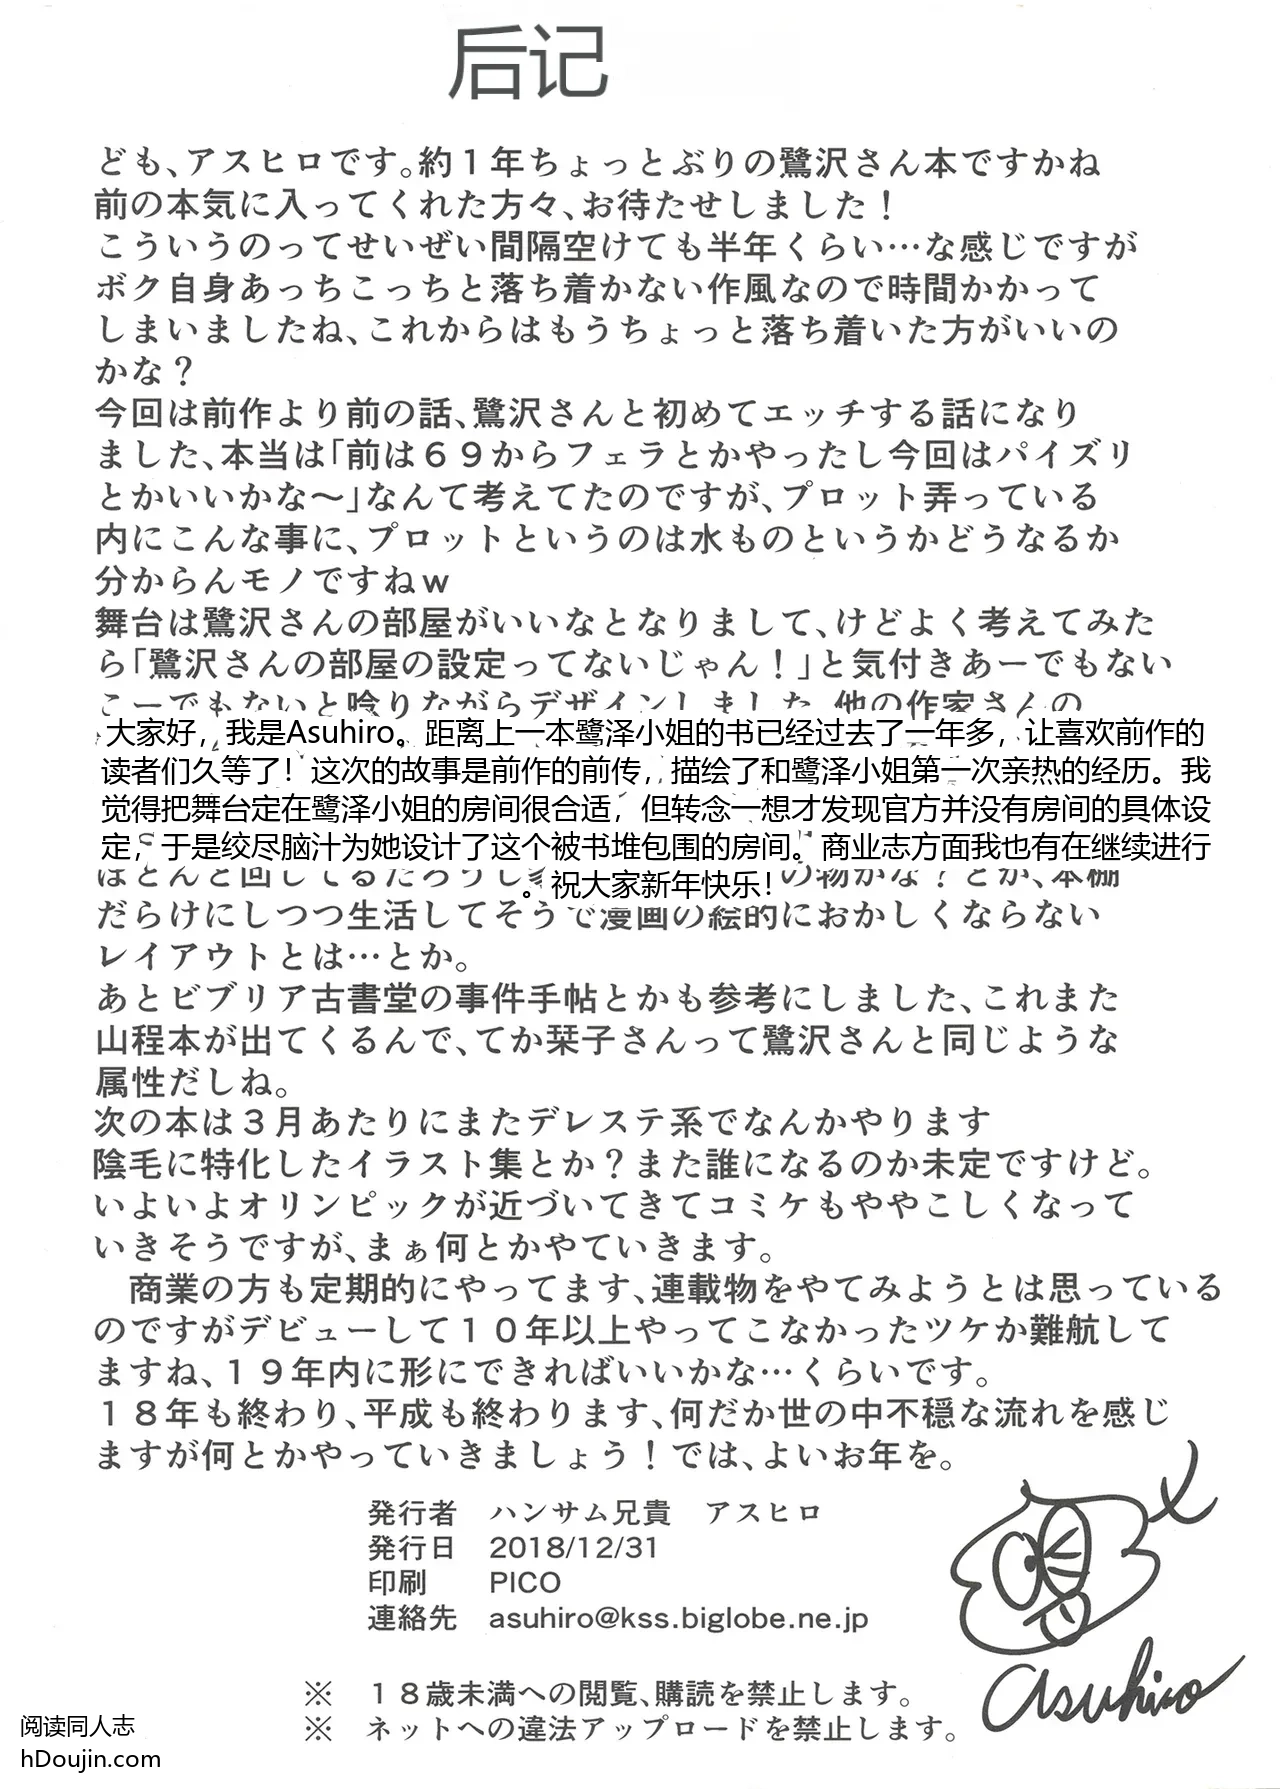 后记
ども、アスヒロです。約１年ちょっとぶりの鷺沢さん本ですかね
前の本気に入ってくれた方々、お待たせしました！
こういうのってせいぜい間隔空けても半年くらい…な感じですが
ボク自身あっちこっちと落ち着かない作風なので時間かかって
しまいましたね、これからはもうちょっと落ち着いた方がいいの
かな？
今回は前作より前の話、鷺沢さんと初めてエッチする話になり
ました、本当は「前は６９からフェラとかやったし今回はパイズリ
とかいいかな～」なんて考えてたのですが、プロット弄っている
内にこんな事に、プロットというのは水ものというかどうなるか
分からんモノですねｗ
舞台は鷺沢さんの部屋がいいなとなりまして、けどよく考えてみた
ら「鷺沢さんの部屋の設定ってないじゃん！」と気付きあーでもない
こーでもないと唸りながらデザインしました、他の作家さんの
大家好，我是Asuhiro。距离上一本鹭泽小姐的书已经过去了一年多，让喜欢前作的
读者们久等了！这次的故事是前作的前传，描绘了和鹭泽小姐第一次亲热的经历。我
觉得把舞台定在鹭泽小姐的房间很合适，但转念一想才发现官方并没有房间的具体设
定，于是绞尽脑汁为她设计了这个被书堆包围的房间。商业志方面我也有在继续进行
。祝大家新年快乐！
ほとんど回してるだろうし の物かな？とか、本棚
だらけにしつつ生活してそうで漫画の絵的におかしくならない
レイアウトとは…とか。
あとビブリア古書堂の事件手帖とかも参考にしました、これまた
山程本が出てくるんで、てか栞子さんって鷺沢さんと同じような
属性だしね。
次の本は３月あたりにまたデレステ系でなんかやります
陰毛に特化したイラスト集とか？また誰になるのか未定ですけど。
いよいよオリンピックが近づいてきてコミケもややこしくなって
いきそうですが、まぁ何とかやていきます。
商業の方も定期的にやってます、連載物をやてみようとは思っている
のですがデビューして１０年以上やってこなかったツケか難航して
ますね、１９年内に形にできればいいかな…くらいです。
１８年も終わり、平成も終わります、何だか世の中不穏な流れを感じ
ますが何とかやっていきましょう！では、よいお年を。
発行者 ハンサム兄貴 アスヒロ
発行日 2018/12/31
印刷 PICO
連絡先 asuhiro@kss.biglobe.ne.jp
asuhiro
※ １８歳未満への閲覧、購読を禁止します。
※ ネットへの違法アップロードを禁止します。
阅读同人志
hDoujin.com